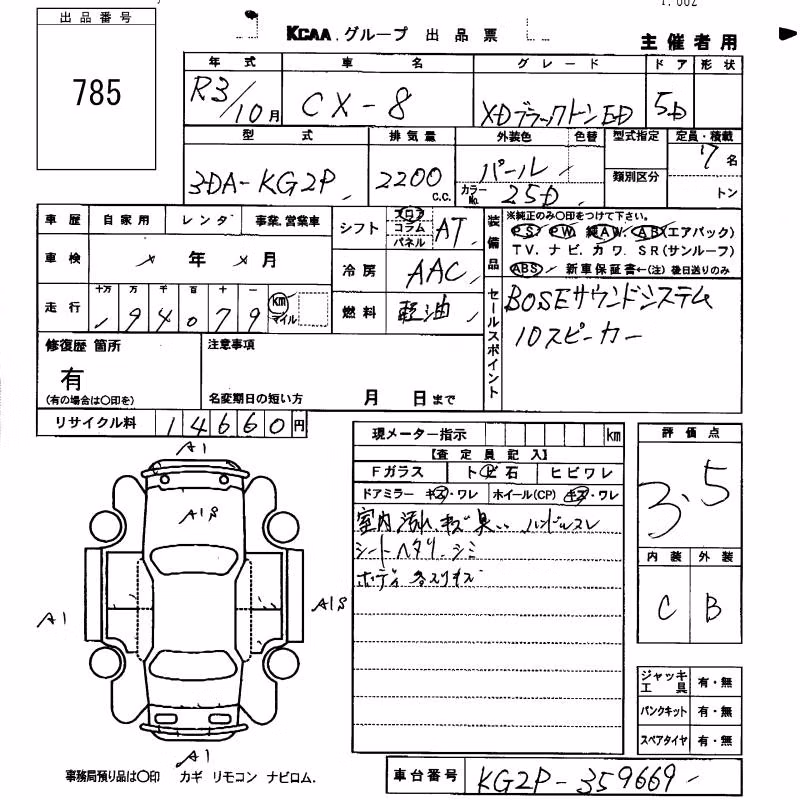 出品番号
785
KCAA グループ 出品票
主催者用
年式 車名 グレード ドア 形状
R3/10月 CX-8 XDブラックトーンED 5D
型式 排気量 外装色 色替 型式指定 定員・積載
3DA-KG2P 2200 c.c. パール 7名
カラーNo. 25D 類別区分 トン
車歴 自家用 レンタ 事業、営業車
シフト フロア コラム パネル AT
装備品
※純正のみ〇印をつけて下さい。
PS PW 純AW. AB(エアバック)
TV. ナビ. カワ. SR(サンルーフ)
ABS 新車保証書←(注)後日送りのみ
車検 年 月
冷房 AAC
走行 十万 万 千 百 十 一
94079 km マイル
燃料 軽油
セールスポイント
BOSEサウンドシステム
10スピーカー
修復歴 箇所
有
(有の場合は〇印を)
注意事項
名変期日の短い方 月 日まで
リサイクル料 14660円
現メーター指示 km
【査定員記入】
Fガラス トビ石 ヒビワレ
ドアミラー キズ・ワレ ホイール(CP) キズ・ワレ
室内汚れ キズ 臭い ハンドルスレ
シートヘタリ シミ
ボディ 各スリキズ
評価点
3.5
内装 外装
C B
A1
A1S
A1
A1S
A1
ジャッキ工具 有・無
パンクキット 有・無
スペアタイヤ 有・無
事務局預り品は〇印 カギ リモコン ナビロム.
車台番号 KG2P-359669